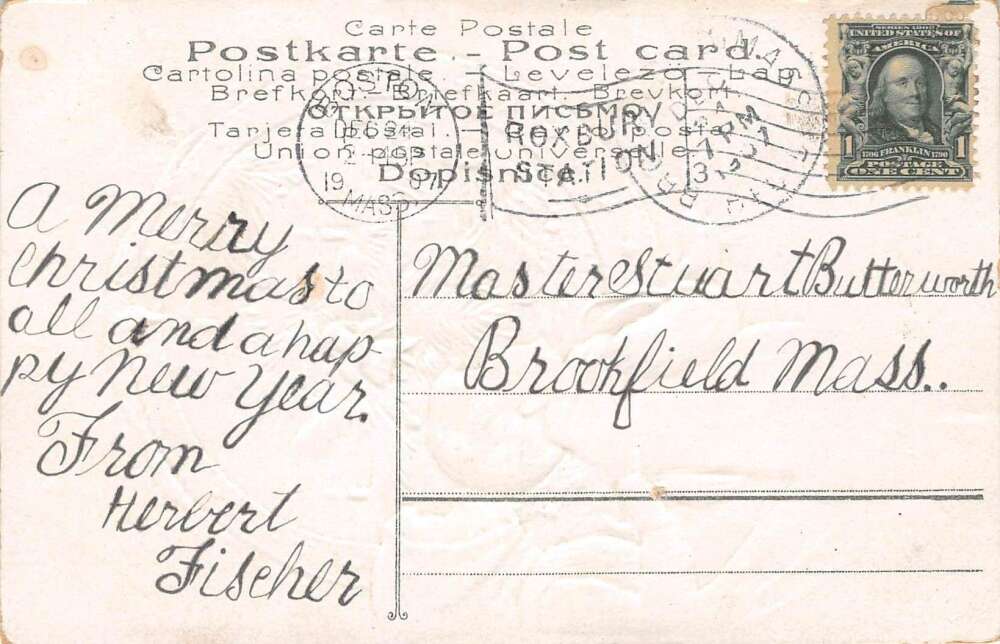 Carte Postale
Postkarte - Post card
Cartolina postale - Levelező-Lap
Brefkort - Briefkaart - Brevkort
ОТКРЫТОЕ ПИСЬМО
Tarjeta postal - Carte postale
Union postale universelle
Dopisnice
BOSTON
DEC 24
19 07
MASS
ROXBURY
STATION
MASS
7 PM
SERIES 1902
UNITED STATES OF
AMERICA
1 1706 FRANKLIN 1790 1
POSTAGE
ONE CENT
A Merry
Christmas to
all and a hap-
py New Year.
From
Herbert
Fischer
Master Stuart Butterworth
Brookfield Mass..